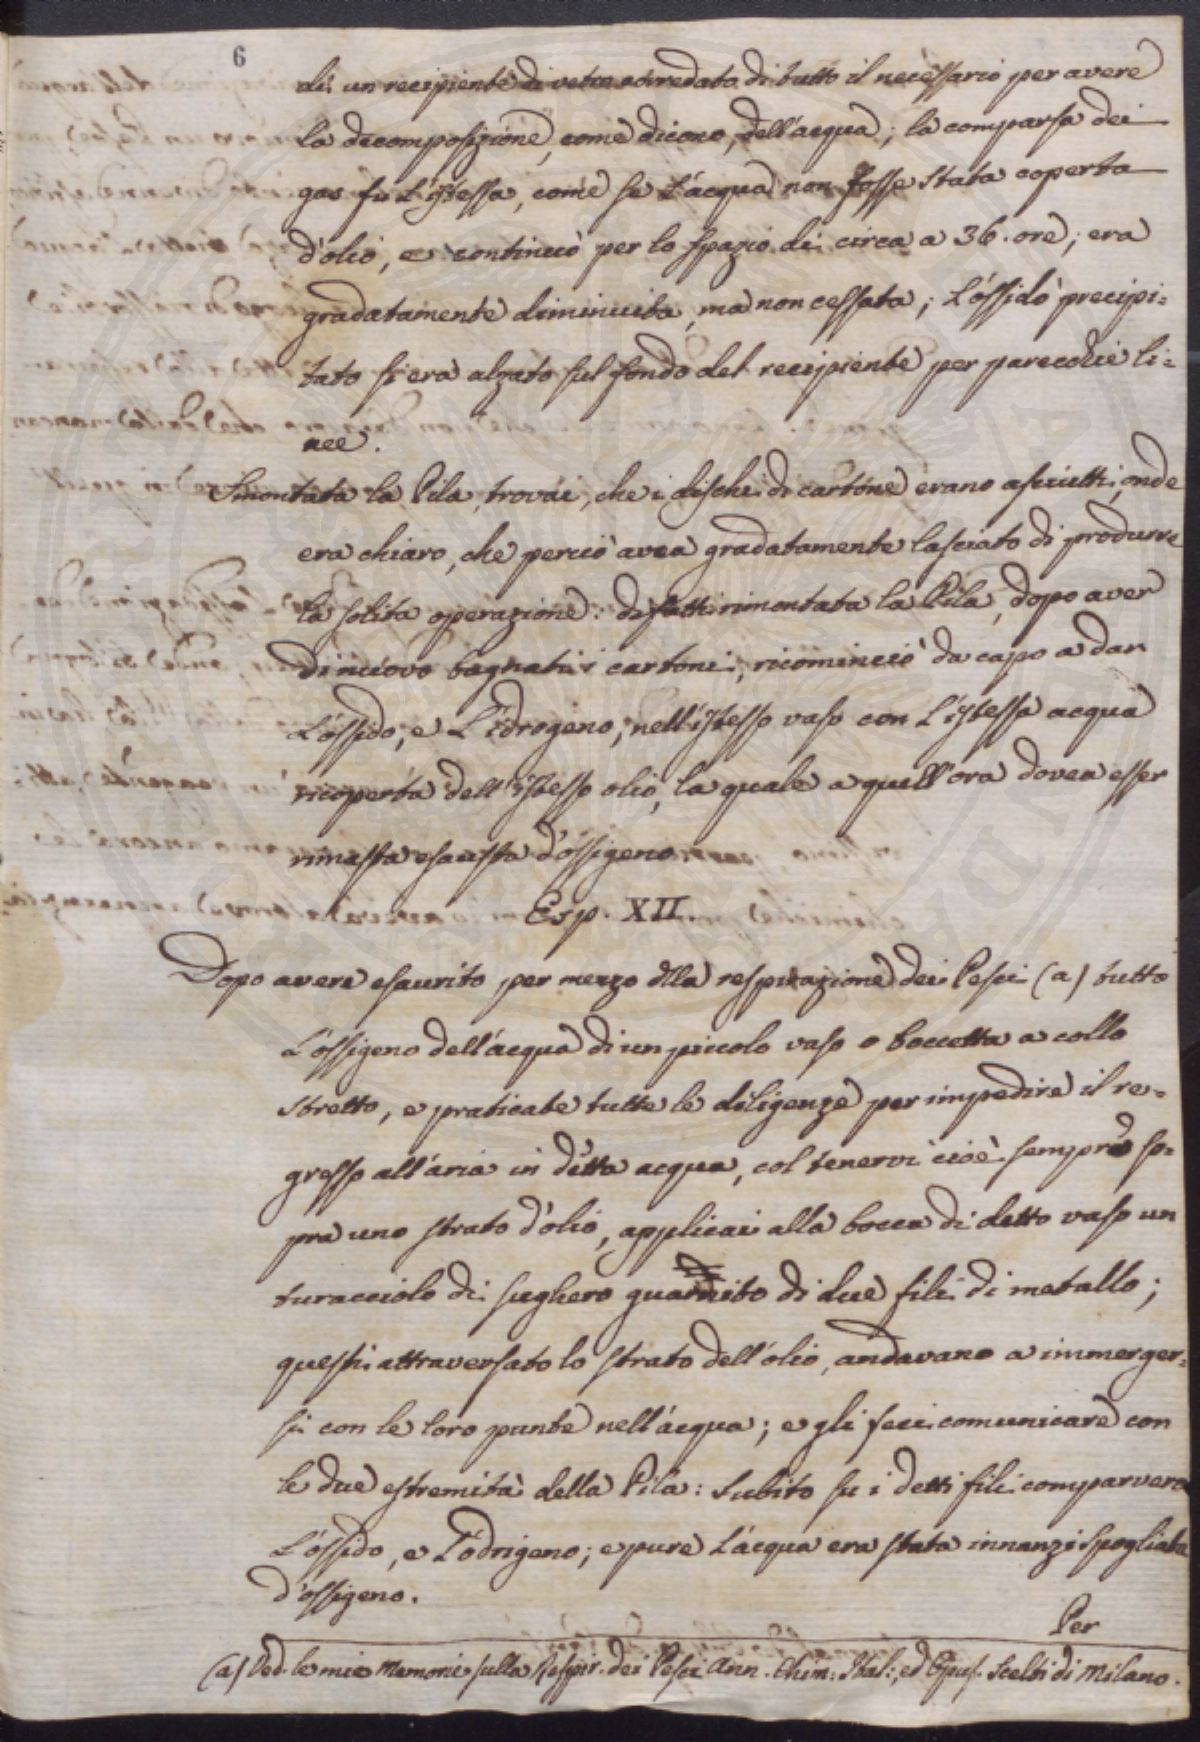 6
di un recipiente di vetro corredato di tutto il necessario per avere
la decomposizione, come dicono, dell'acqua; la comparsa dei
gas fu l'istessa, come se l'acqua non fosse stata coperta
d'olio, e continuò per lo spazio di circa a 36. ore; era
gradatamente diminuita, ma non cessata; l'ossido precipi=
tato si era alzato sul fondo del recipiente per parecchie li=
nee.
Smontata la Pila, trovai, che i dischi di cartone erano asciutti, onde
era chiaro, che perciò avea gradatamente lasciato di produrre
la solita operazione: difatti rimontata la Pila, dopo aver
di nuovo bagnati i cartoni, ricominciò da capo a dar
l'ossido, e l'Idrogeno, nell'istesso vaso con l'istessa acqua
ricoperta dell'istesso olio, la quale a quell'ora dovea esser
rimasta esausta d'ossigeno.
Esp. XII.
Dopo avere esaurito per mezzo dlla respirazione dei Pesci (a) tutto
l'ossigeno dell'acqua di un piccolo vaso o boccetta a collo
stretto, e praticate tutte le diligenze per impedire il re=
gresso all'aria in detta acqua, col tenervi cioè sempre so=
pra uno strato d'olio, applicai alla bocca di detto vaso un
turacciolo di sughero guarnito di due fili di metallo;
questi attraversato lo strato dell'olio, andavano a immerger=
si con le loro punte nell'acqua; e gli feci comunicare con
le due estremità della Pila: subito su i detti fili comparvero
l'ossido, e l'odrigeno; e pure l'acqua era stata innanzi spogliata
d'ossigeno.
Per
(a) Ved. le mie Memorie sulla Respir. dei Pesci Ann. Chim: Ital:, ed Opus. Scelti di Milano.